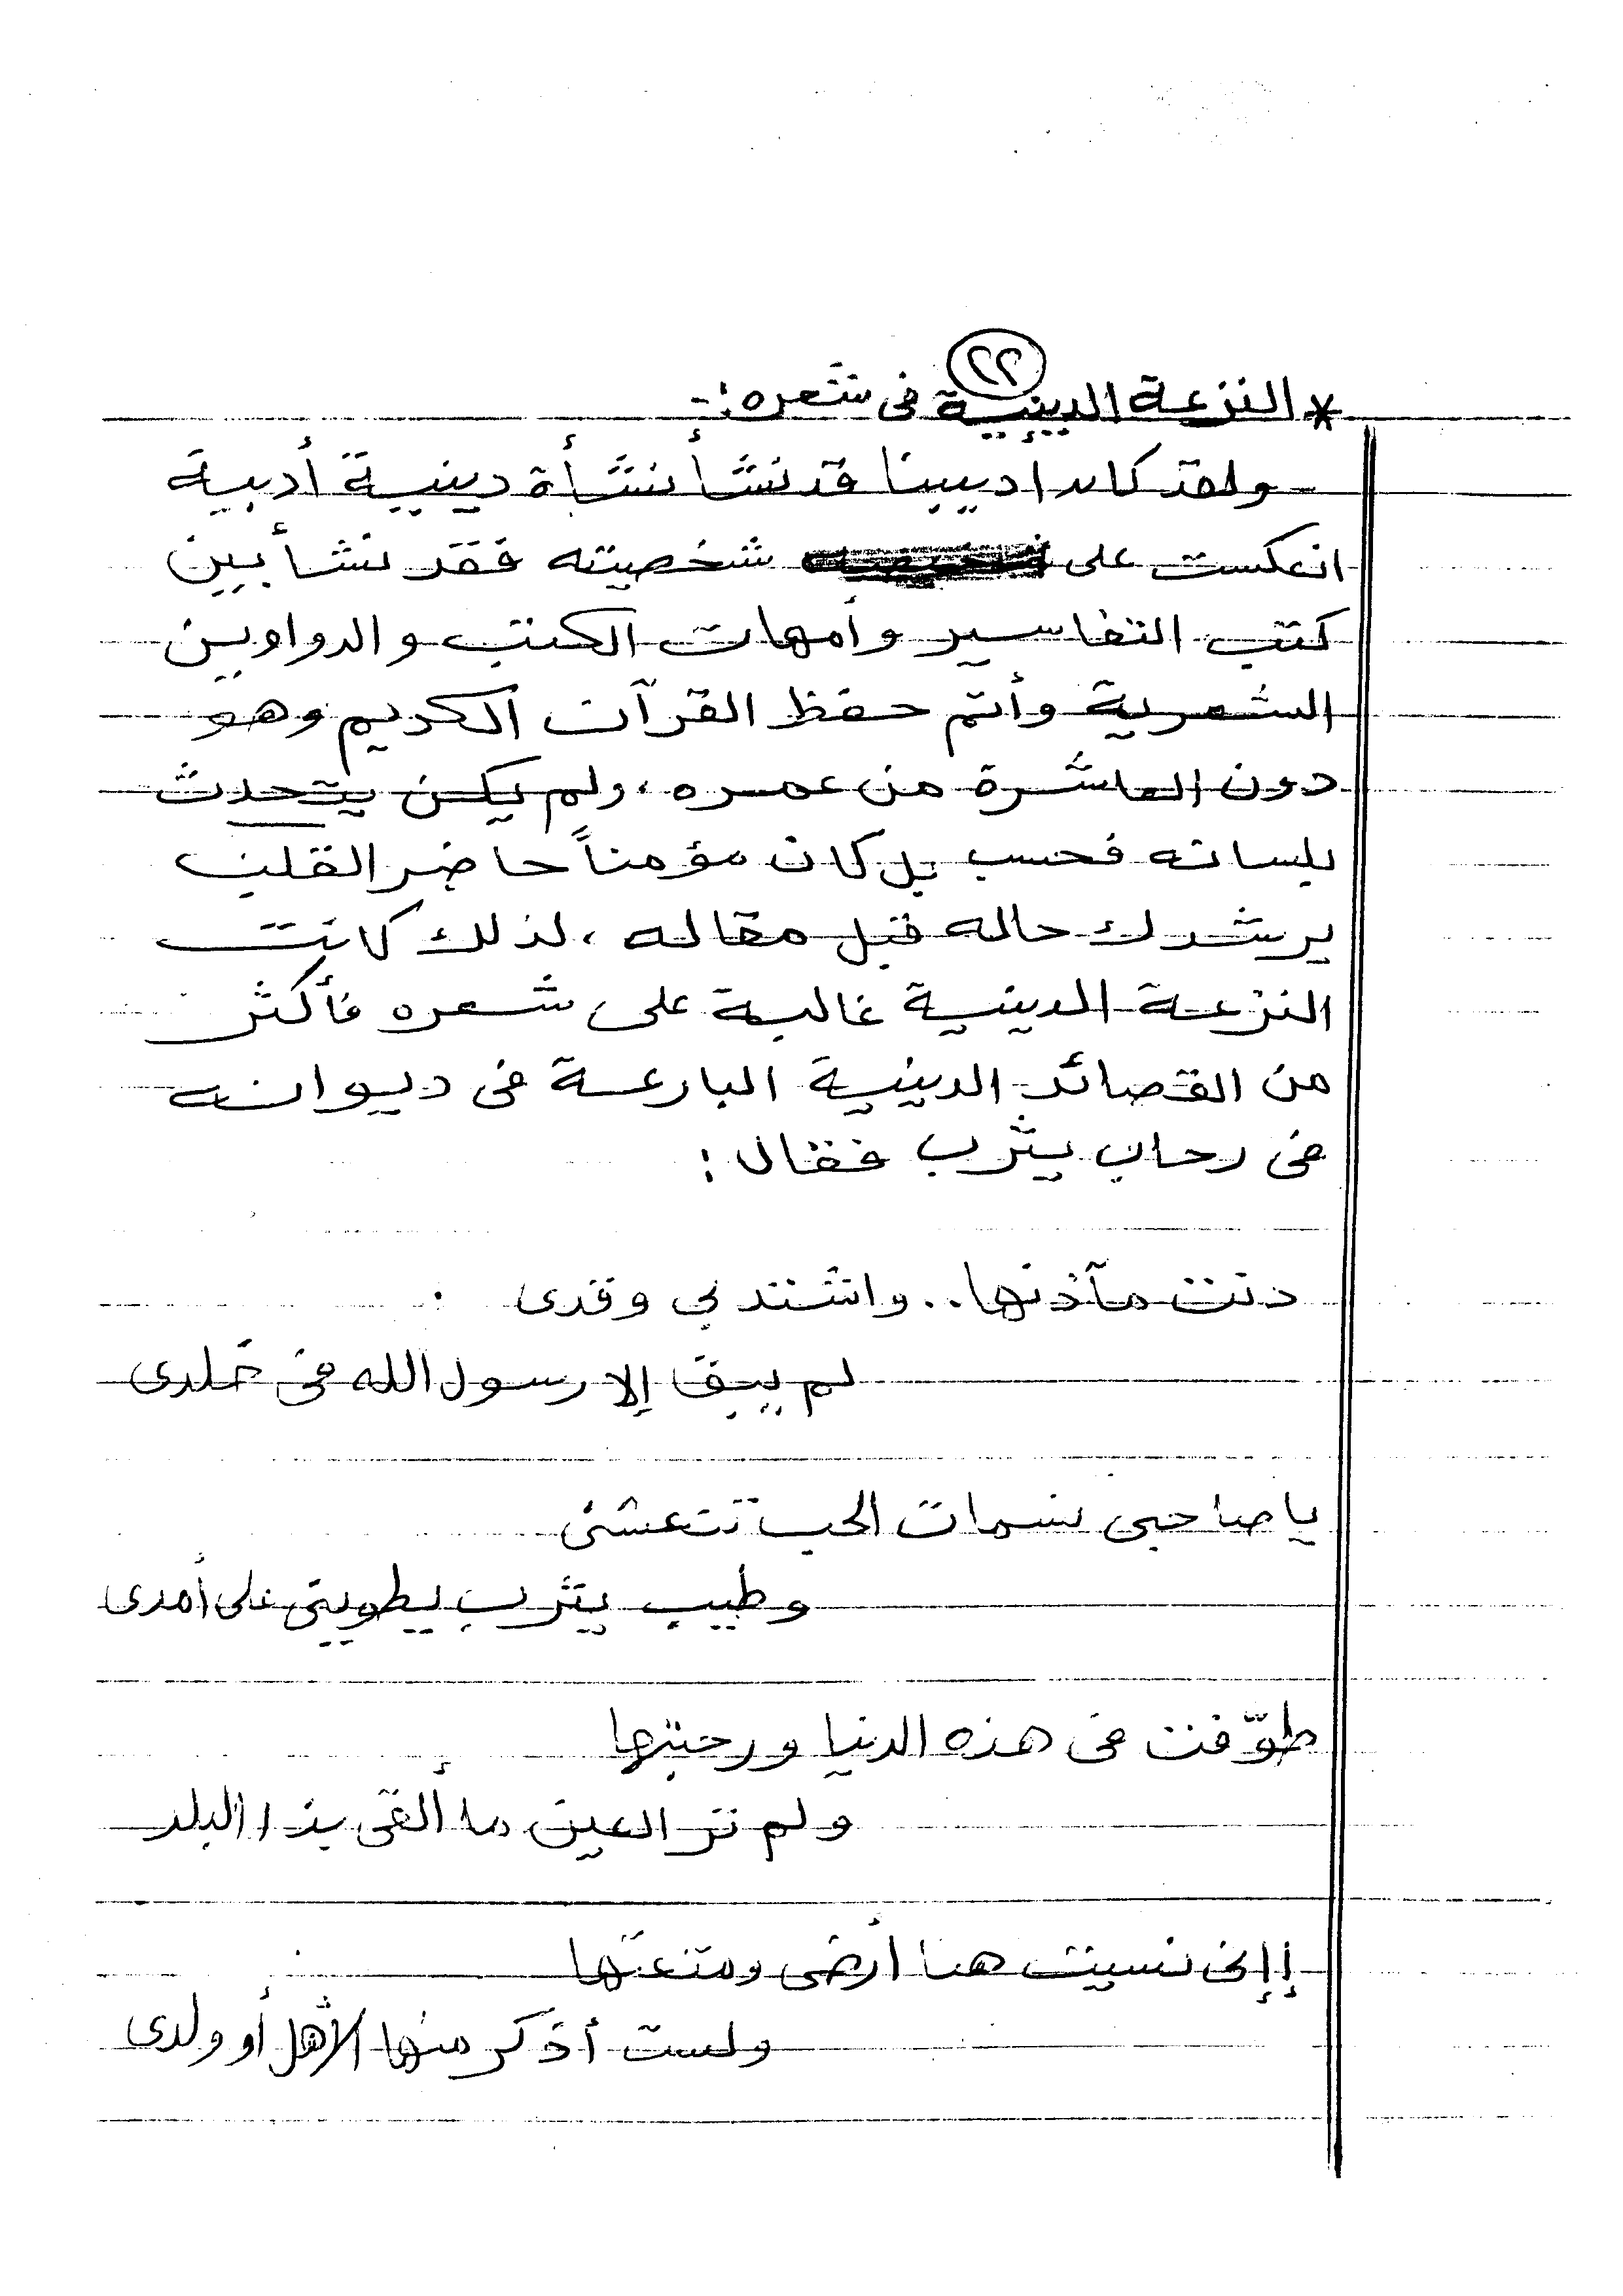 ٢٢
* النزعة الدينية فى شعره :-
- ولقد كان اديبنا قد نشأ نشأة دينية أدبية
انعكست على شخصيته فقد نشأ بين
كتب التفاسير وأمهات الكتب والدواوين
الشعرية وأتم حفظ القرآن الكريم وهو
دون العاشرة من عمره، ولم يكن يتحدث
بلسانه فحسب بل كان مؤمناً حاضر القلب
يرشدك حاله قبل مقاله، لذلك كانت
النزعة الدينية غالبة على شعره فأكثر
من القصائد الدينية البارعة فى ديوانه
فى رحاب يثرب فقال :
دنت مآذنها.. واشتد بى وقدى
لم يبق إلا رسول الله فى خلدى
يا صاحبى نسمات الحب تنعشنى
وطيب يثرب يطوينى على أمدى
طوّفت فى هذه الدنيا ورحبتها
ولم تر العين ما ألقى بذا البلد
إنى نسيت هنا أرضى ومتعتها
ولست أذكر منها الأهل أو ولدى